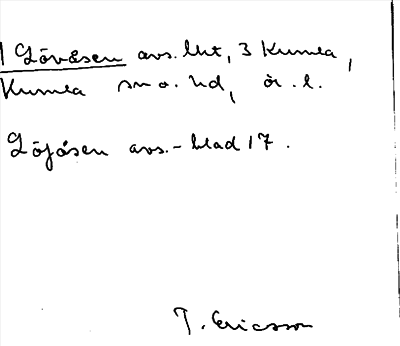 1 Lövåsen avs. lht, 3 Kumla,
Kumla sn o. hd, ör. l.
Löjåsen avs.-blad 17.
T. Ericsson